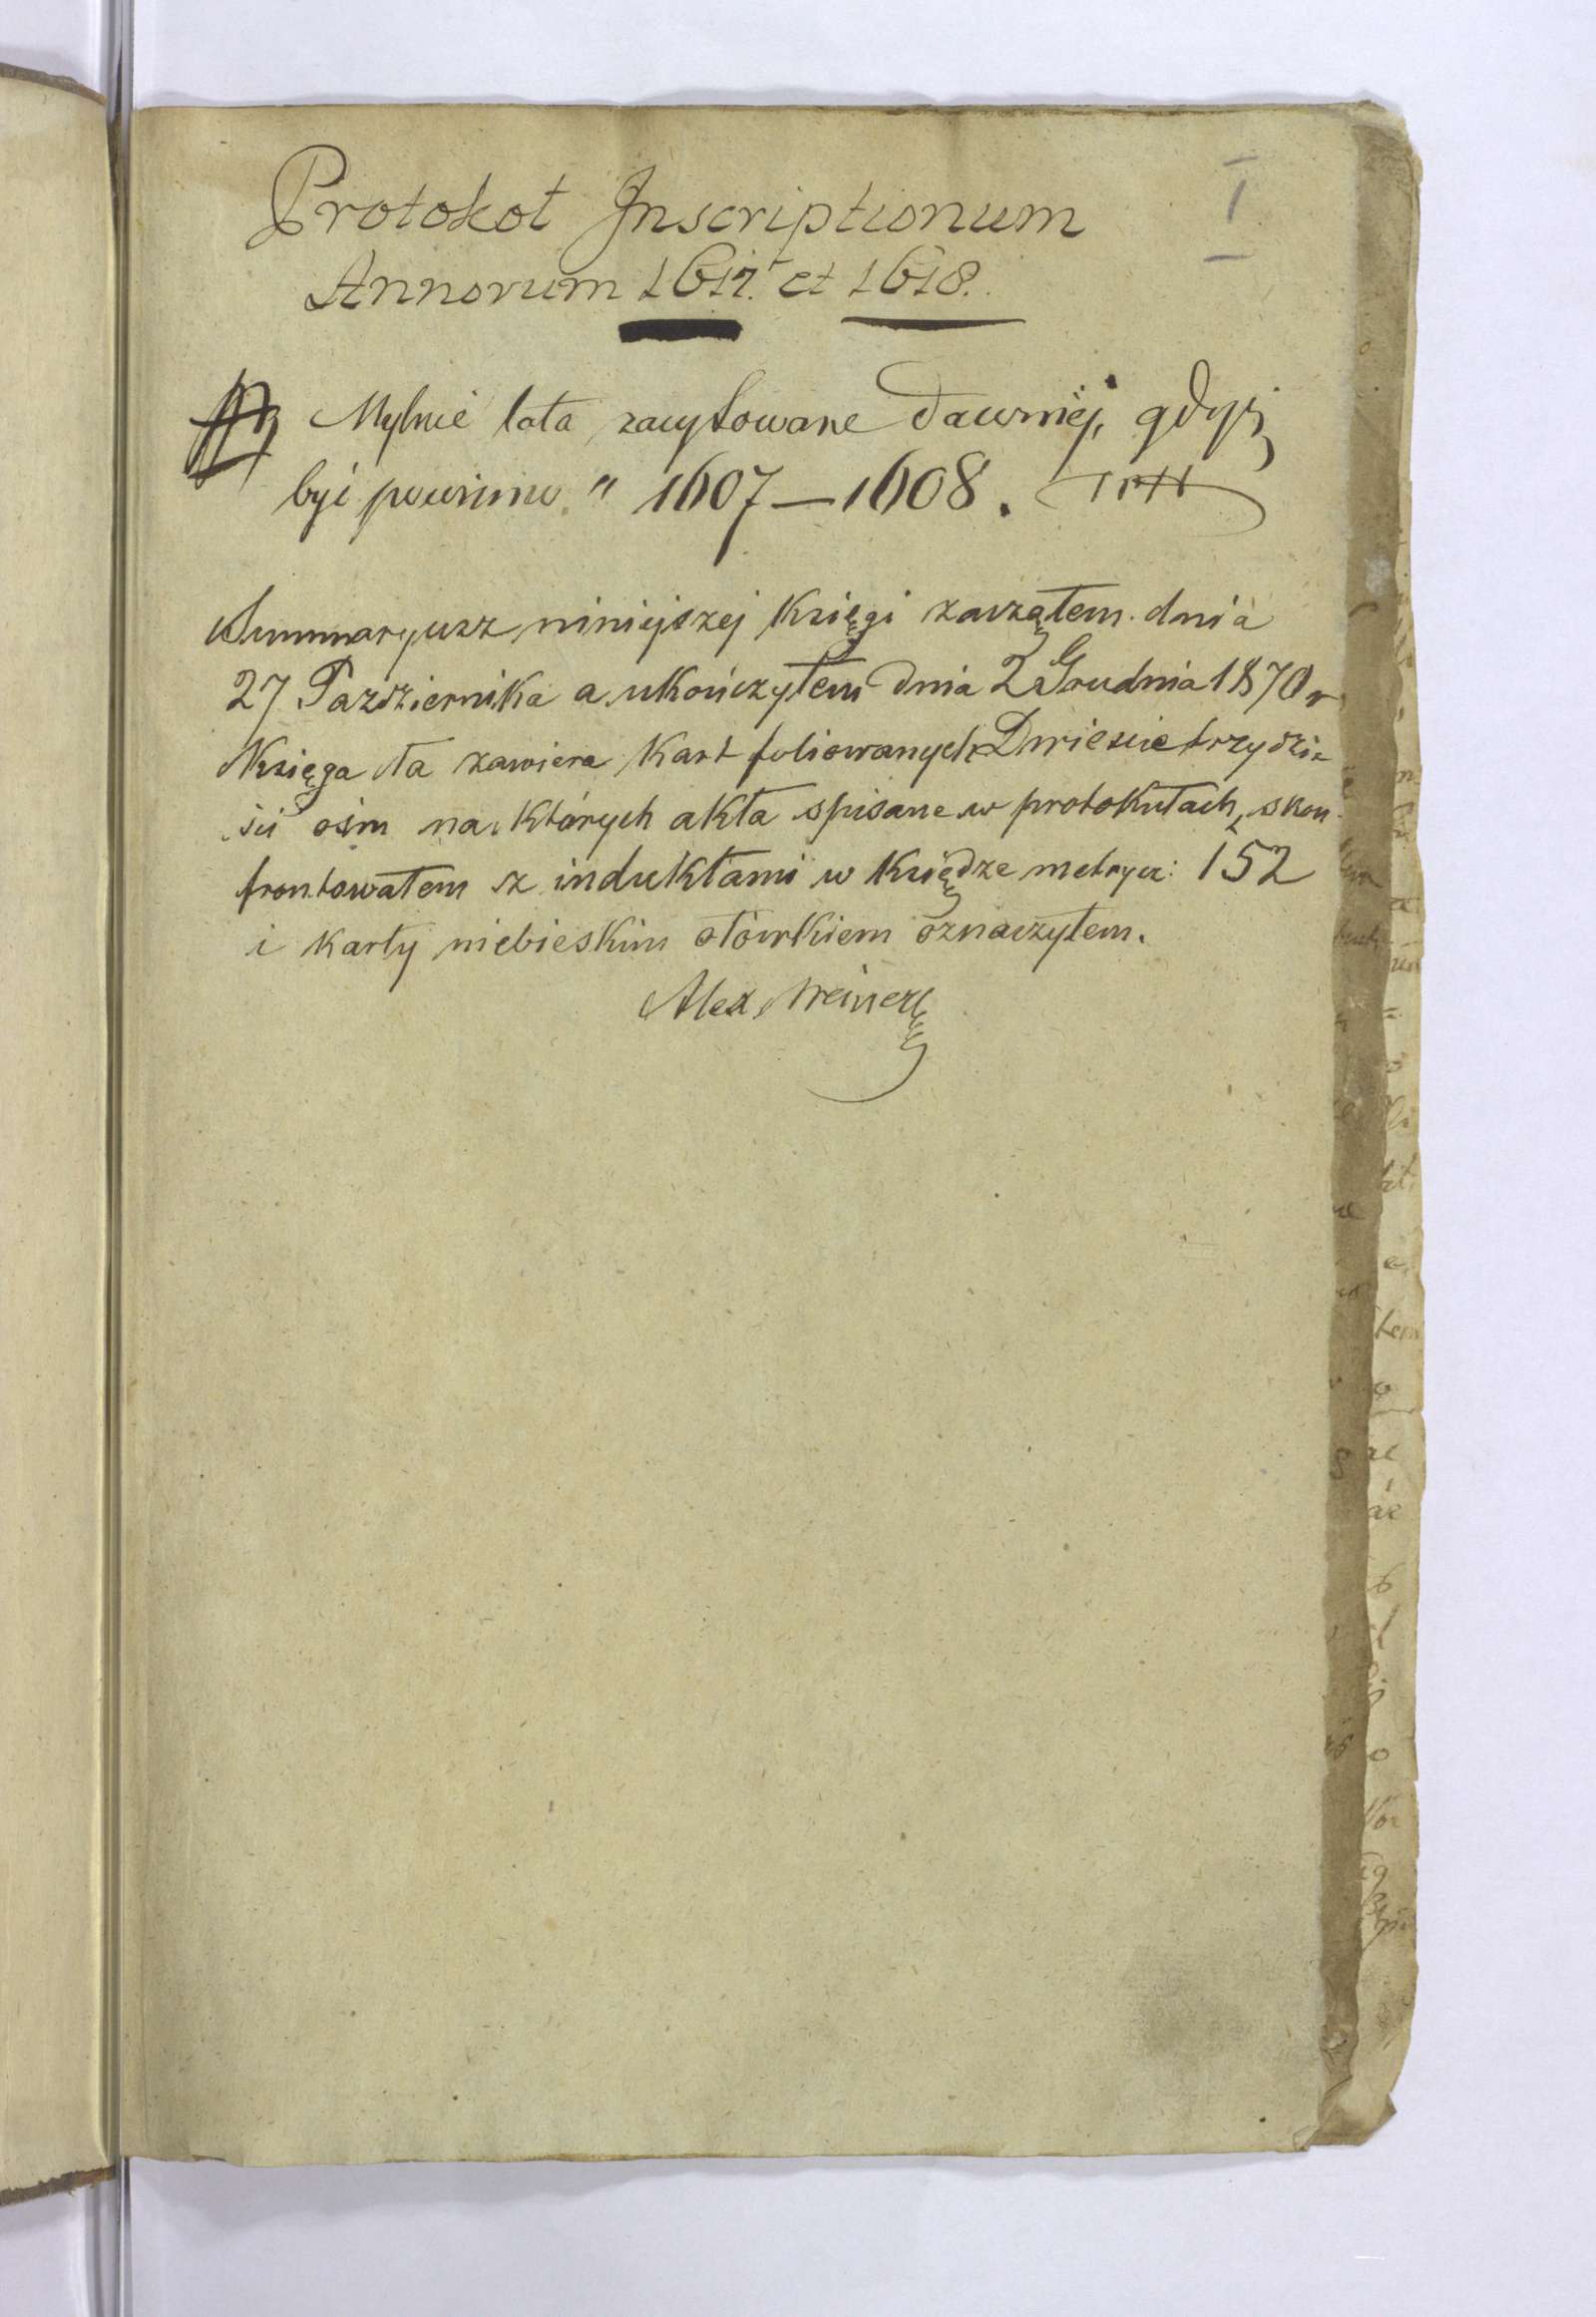 I
Protokoł Inscriptionum
Annorum 1617. et 1618.
Mylnie lata zacytowane dawniej, gdyż
być powinno " 1607 – 1608.
Summaryusz niniejszej Księgi zacząłem dnia
27 Pazdziernika a ukończyłem dnia 2 Grudnia 1870 r
Księga ta zawiera Kart foliowanych Dwiescie trzydzie
ści ośm na których akta spisane w protokułach, skon
frontowałem z induktami w Księdze metrycz: 152
i karty niebieskim ołówkiem oznaczyłem.
Alex